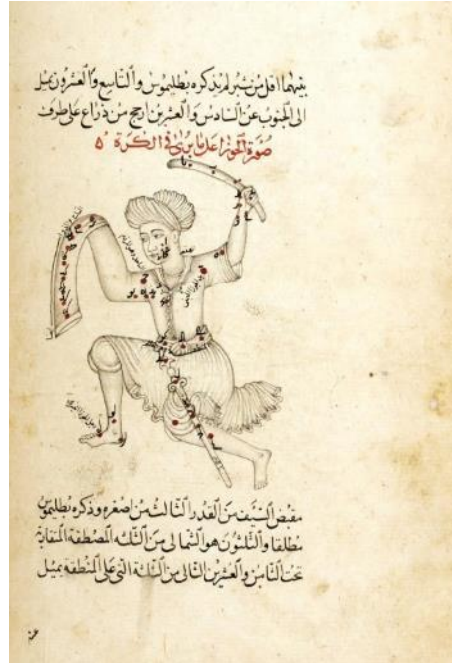 بينهما اقل من شبر لم يذكره بطلميوس والتاسع والعشرون يميل
الى الجنوب عن السادس والعشرين ارجح من ذراع على طرف
صورة الجوزا على ما يرى في الكرة ٥
مقبض السيف من القدر الثالث من اصغره وذكره بطلميوس
مطلقا والثلثون هو الشمالى من الثلثه المصطفة المتقاربة
تحت الثامن والعشرين التالى من الثلثة التى على المنطقة يميل